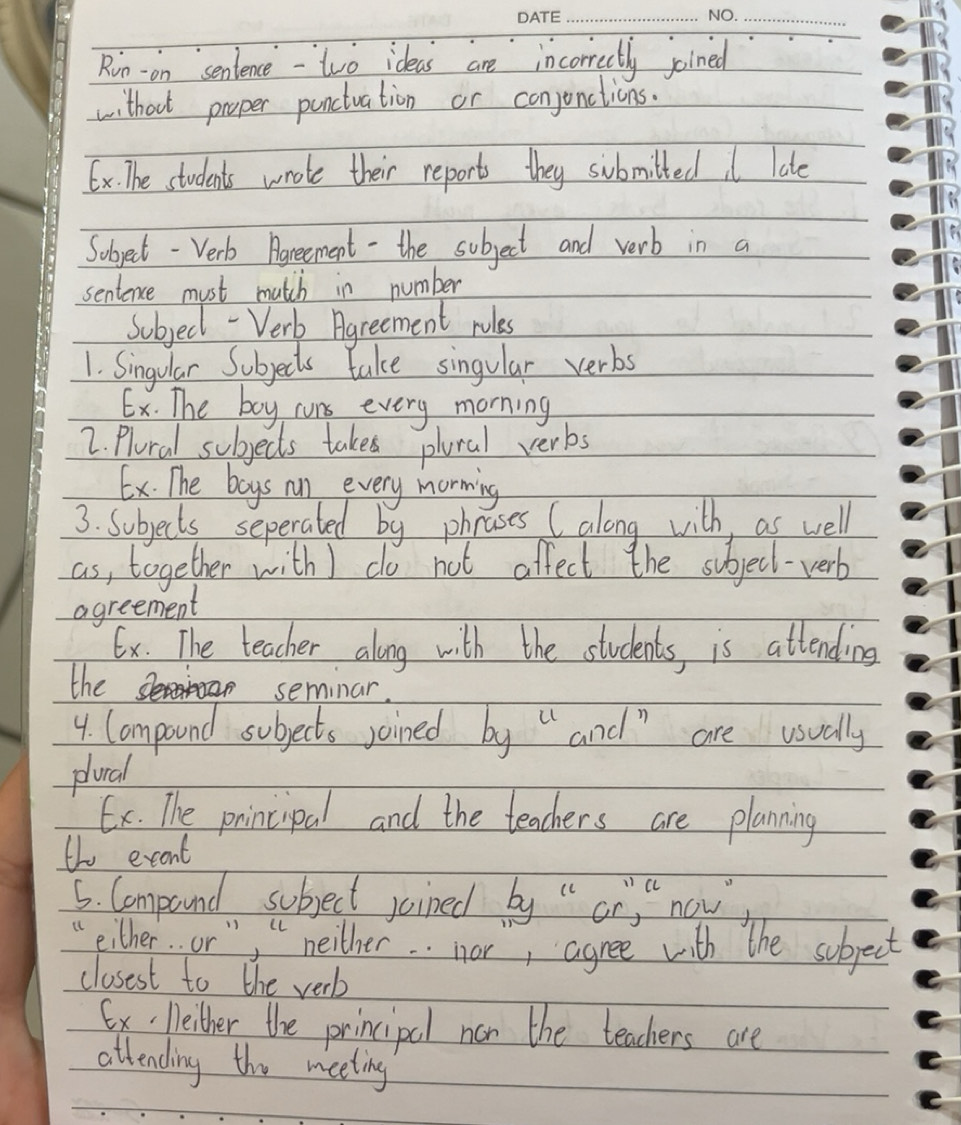 DATE ........................... NO. .....................
Run-on sentence - two ideas are incorrectly joined
without proper punctuation or conjunctions.
Ex. The students wrote their reports they submitted it late
Subject - Verb Agreement - the subject and verb in a
sentence must match in number
Subject - Verb Agreement rules
1. Singular Subjects take singular verbs
Ex. The boy runs every morning
2. Plural subjects takes plural verbs
Ex. The boys run every morning
3. Subjects seperated by phrases (along with, as well
as, together with) do not affect the subject-verb
agreement
Ex. The teacher along with the students, is attending
the seminar.
4. Compound subjects joined by "and" are usually
plural
Ex. The principal and the teachers are planning
the event
5. Compound subject joined by "or," "now",
"either..or", "neither .. nor", agree with the subject
closest to the verb
Ex. Neither the principal nor the teachers are
attending the meeting